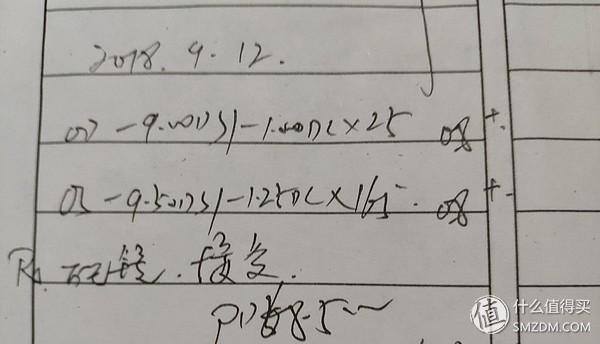 2018.9.12.
OD -9.00DS/-1.00DC×25 0.8+.
OS -9.50DS/-1.25DC×165. 0.8+.
Rx 配镜.接受.
PD 68.5mm
值 什么值得买
SMZDM.COM